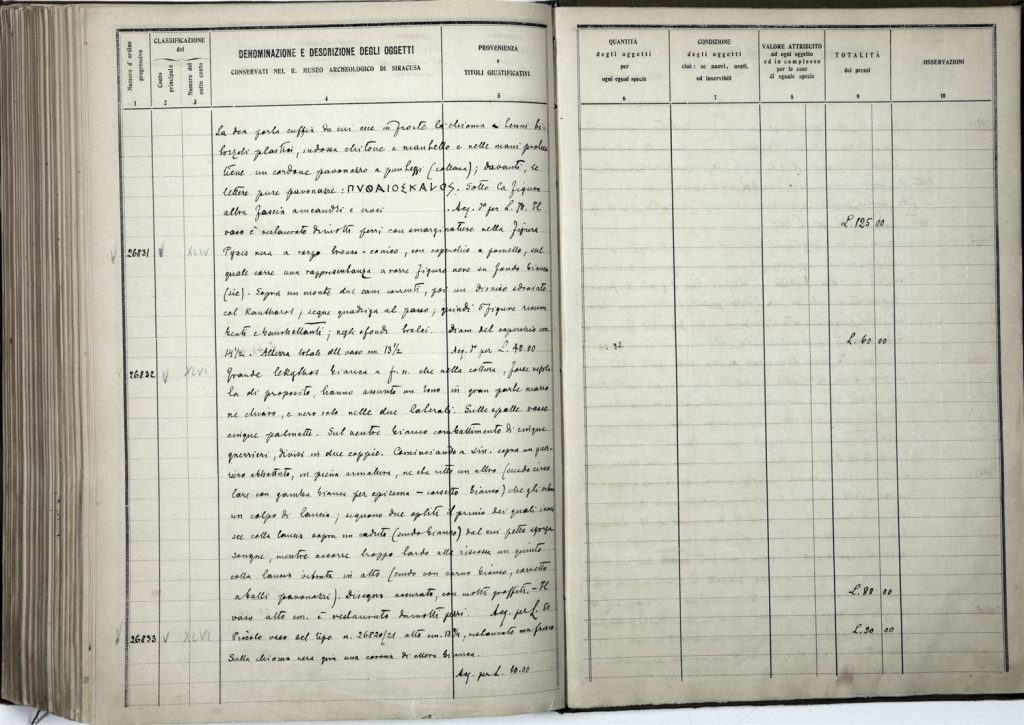 Numero d'ordine progressivo
CLASSIFICAZIONE del
Conto principale
Numero del sotto conto
DENOMINAZIONE E DESCRIZIONE DEGLI OGGETTI
CONSERVATI NEL R. MUSEO ARCHEOLOGICO DI SIRACUSA
PROVENIENZA
e
TITOLI GIUSTIFICATIVI
1 2 3 4 5
La dea porta cuffia da cui esce in fronte la chioma a
plastici, indossa chitone e mantello e nelle mani
tiene un cordone pavonazzo a (collana); davanti, le
lettere pure pavonazze: ΠΥΘΑΙΟΣΚΑΛΟΣ. Sotto la figura
altra fascia a meandri e croci
. Acq. per L. 70. Il
vaso è restaurato da molti pezzi con smarginature nella figura
26831 V XLIV Pyxis nera a corpo tronco-conico, con coperchio a pomello, sul
quale corre una rappresentanza a zone figure nere su fondo bianco
(sic). Sopra un monte due cani correnti, poi un Dioniso sdraiato
col Kantharos; segue quadriga al passo; quindi 5 figure recum
benti e banchettanti; negli sfondi tralci. Diam. del coperchio cm.
14½. Altezza totale del vaso cm. 13½ Acq. per L. 40.00
26832 V XLVI Grande lekythos bianca a f. n. che nella cottura, forse
di proposito, hanno assunto un tono in gran parte marro
ne chiaro, e nero solo nelle due laterali. Sulle spalle
cinque palmette. Sul ventre bianco combattimento di cinque
guerrieri, divisi in due coppie. Cominciando a sin. sopra un guer
riero abbattuto, in piena armatura, ne sta ritto un altro (scudo circo
lare con gamba bianca per episema – corsetto bianco) che gli vibra
un colpo di lancia; seguono due opliti il primo dei quali
sce colla lancia sopra un caduto (scudo bianco) dal cui petto sgorga
sangue, mentre accorre troppo tardo alla riscossa un quinto
colla lancia vibrata in alto (scudo con bianco, corsetto
pavonazzi). Disegno accurato, con molti graffiti. – Il
vaso alto cm. è restaurato da molti pezzi. Acq. per L. 60
26833 V XLVI Piccolo vaso del tipo n. 26820/21 alto cm. restaurato ma fresco
Sulla chioma nera gira una corona di edera bianca.
Acq. per L. 10.00
QUANTITÀ
degli oggetti
per
ogni egual specie
CONDIZIONE
degli oggetti
cioè: se nuovi, usati,
od inservibili
VALORE ATTRIBUITO
ad ogni oggetto
ed in complesso
per le cose
di eguale specie
TOTALITÀ
dei prezzi
OSSERVAZIONI
6 7 8 9 10
L. 125 00
L. 60 00
L. 80 00
L. 20 00